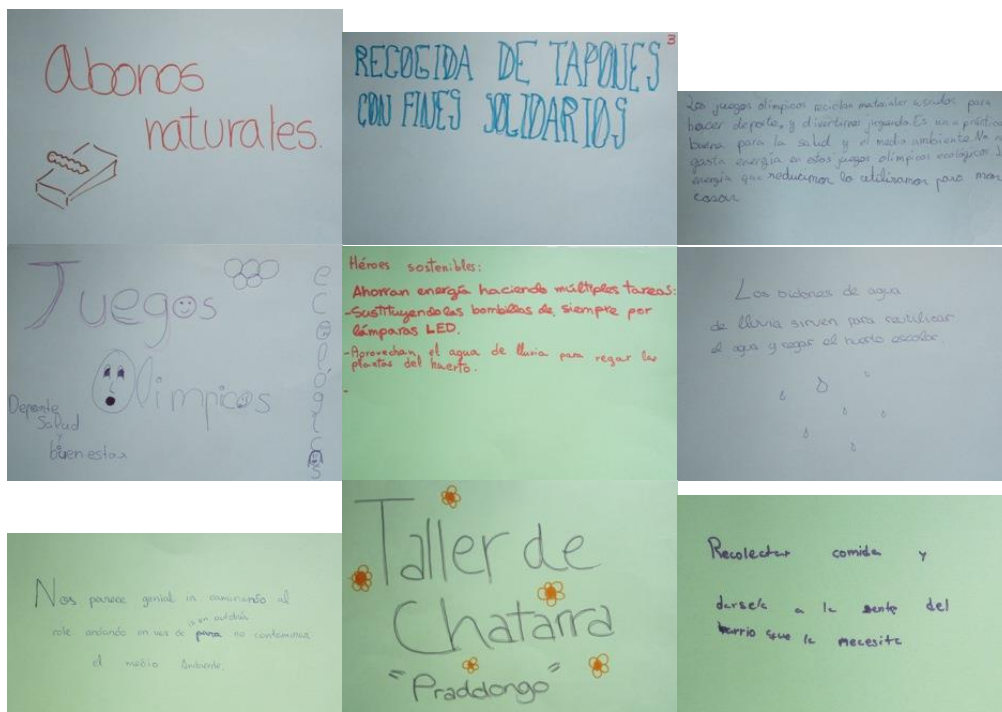 Abonos
naturales.
RECOGIDA DE TAPONES
CON FINES SOLIDARIOS
3
Los juegos olimpicos reciclan materiales usados para
hacer deporte, y divertirnos jugando. Es una práctica
buena para la salud y el medio ambiente. No
gasta energía en estos juegos olimpicos ecológicos.
energía que reducimos la utilizamos para
cosas
Juegos
Olimpicos
ecológicos
Deporte
Salud
y
bienestar
Héroes sostenibles:
Ahorran energía haciendo múltiples tareas:
-Sustituyendo las bombillas de siempre por
lámparas LED.
-Aprovechan el agua de lluvia para regar las
plantas del huerto.
Los bidones de agua
de lluvia sirven para reutilizar
el agua y regar el huerto escolar
Nos parece genial ir caminando al
cole andando en vez de para no contaminar
el medio Ambiente.
Taller de
Chatarra
"Pradolongo"
Recolectar comida y
darsela a la gente del
barrio que la necesita